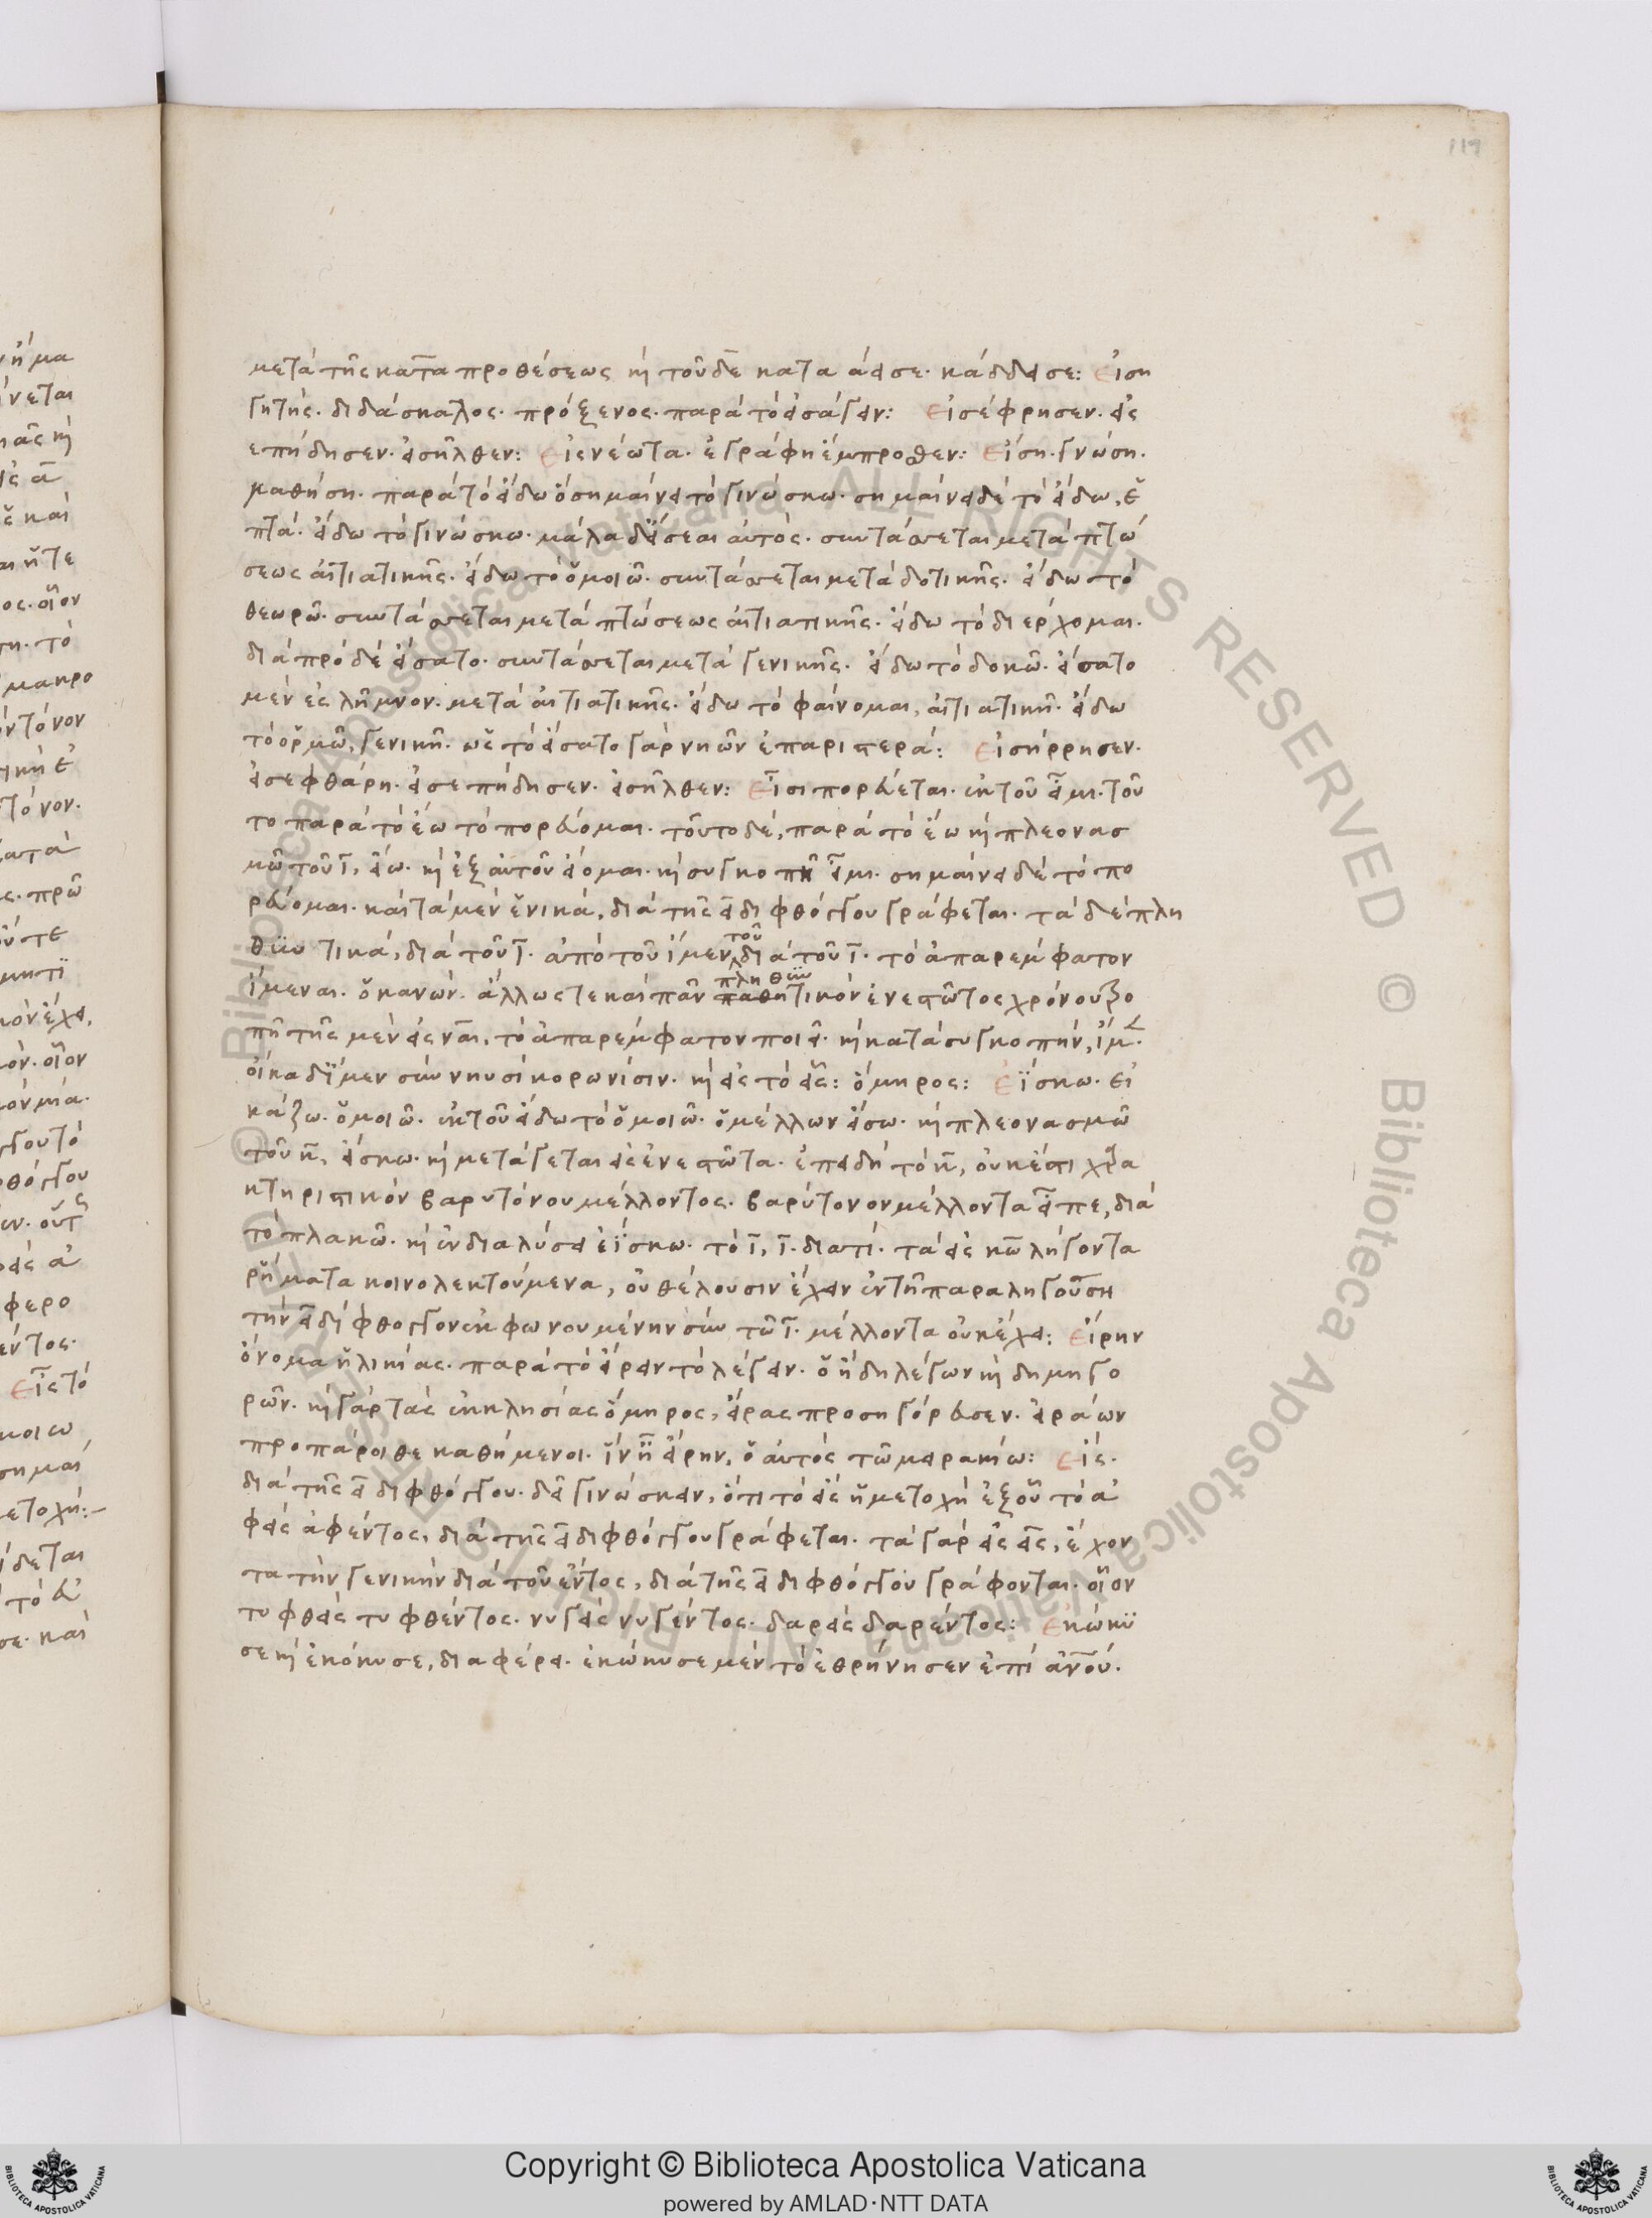 119
μετὰ τῆς κατὰ προθέσεως καὶ τοῦ δε κατα άεισε· κάδδεισε: Εἰση
γητής· διδάσκαλος· πρόξενος· παρὰ τὸ εἰσάγειν: Εἰσέφρησεν· εἰς
επήδησεν· εἰσῆλθεν: Εἰς νέωτα· ἐγράφη ἔμπροσθεν: Εἴση· γνώση·
μαθήση· παρὰ τὸ εἴδω ὃ σημαίνει τὸ γινώσκω· σημαίνει δὲ τὸ εἴδω, ἑ
πτά· εἴδω τὸ γινώσκω· μάλα δ' εἴσεαι αὐτὸς· συντάσσεται μετὰ πτώ
σεως αἰτιατικῆς· εἴδω τὸ ὁμοιῶ· συντάσσεται μετὰ δοτικῆς· εἴδω τὸ
θεωρῶ· συντάσσεται μετὰ πτώσεως αἰτιατικῆς· εἴδω τὸ διέρχομαι·
διὰ πρὸ δὲ εἴσατο· συντάσσεται μετὰ γενικῆς· εἴδω τὸ δοκῶ· εἴσατο
μὲν ἐς λῆμνον· μετὰ αἰτιατικῆς· εἴδω τὸ φαίνομαι, αἰτιατικῆ· εἴδω
τὸ ὁρμῶ, γενικῆ· ὡς τὸ εἴσατο γὰρ νηῶν ἐπαριστερά: Εἰσήρρησεν·
εἰσεφθάρη· εἰσεπήδησεν· εἰσῆλθεν: Εἶσι πορεύεται· ἐκ τοῦ εἶμι· τοῦ
το παρὰ τὸ ἔω τὸ πορεύομαι· τοῦτο δὲ, παρὰ τὸ ἔω καὶ πλεονασ
μῶ τοῦ ῑ, εἴω· καὶ ἐξ αὐτοῦ εἴομαι· καὶ συγκοπῆ εἶμι· σημαίνει δὲ τὸ πο
ρεύομαι· καὶ τὰ μὲν ἑνικά, διὰ τῆς ει διφθόγγου γράφεται· τὰ δὲ πλη
θυντικά, διὰ τοῦ ῑ· ἀπὸ τοῦ ἴμεν τοῦ διὰ τοῦ ῑ· τὸ ἀπαρέμφατον
ἴμεναι· ὁ κανών· ἄλλως τε καὶ πᾶν πληθυντικὸν ἐνεστῶτος χρόνου τρο
πῆ τῆς μεν εἰς ναι, τὸ ἀπαρέμφατον ποιεῖ· καὶ κατὰ συγκοπὴν, ἴμ·
οἴκαδ' ἴμεν σὺν νηυσὶ κορωνίσιν· καὶ εἰς τὸ εἷς: ὅμηρος: Ἐΐσκω· εἰ
κάζω· ὁμοιῶ· ἐκ τοῦ εἴδω τὸ ὁμοιῶ· ὁ μέλλων εἴσω· καὶ πλεονασμῶ
τοῦ κ̄, εἴσκω· καὶ μετάγεται εἰς ἐνεστῶτα· ἐπειδὴ τὸ κ̄, οὐκ ἔστι χαρα
κτηριστικὸν βαρυτόνου μέλλοντος· βαρύτονον μέλλοντα εἶπε, διὰ
τὸ πλακῶ· καὶ ἐν διαλύσει ἐΐσκω· τὸ ῑ, ῑ· διατί· τὰ εἰς κω λήγοντα
ρήματα κοινολεκτούμενα, οὐ θέλουσιν ἔχειν ἐν τῆ παραληγούση
τὴν ει δίφθογγον ἐκφωνουμένην σὺν τῶ ῑ· μέλλοντα οὐκ ἔχει: Εἴρην
ὄνομα ἡλικίας· παρὰ τὸ εἴρειν τὸ λέγειν· ὁ ἤδη λέγων καὶ δημηγο
ρῶν· καὶ γὰρ τὰς ἐκκλησίας ὅμηρος, εἴρας προσηγόρευσεν· εἰράων
προπάροιθε καθήμενοι· ἵν' ἦ εἴρην, ὁ αὐτὸς τῶ μειρακίω: Εἰς·
διὰ τῆς ει διφθόγγου· δεῖ γινώσκειν, ὅτι τὸ εἷς ἡ μετοχὴ ἐξ οὗ τὸ ἀ
φεὶς ἀφέντος, διὰ τῆς ει διφθόγγου γράφεται· τὰ γὰρ εἰς εις, ἔχον
τα τὴν γενικὴν διὰ τοῦ ἐντος, διὰ τῆς ει διφθόγγου γράφονται· οἷον
τυφθεὶς τυφθέντος· νυγεὶς νυγέντος· δαρεὶς δαρέντος: Ἐκώκυ
σε καὶ ἐκόκυσε, διαφέρει· ἐκώκυσε μὲν τὸ ἐθρήνησεν ἐπὶ ἀνου·
Copyright © Biblioteca Apostolica Vaticana
powered by AMLAD·NTT DATA